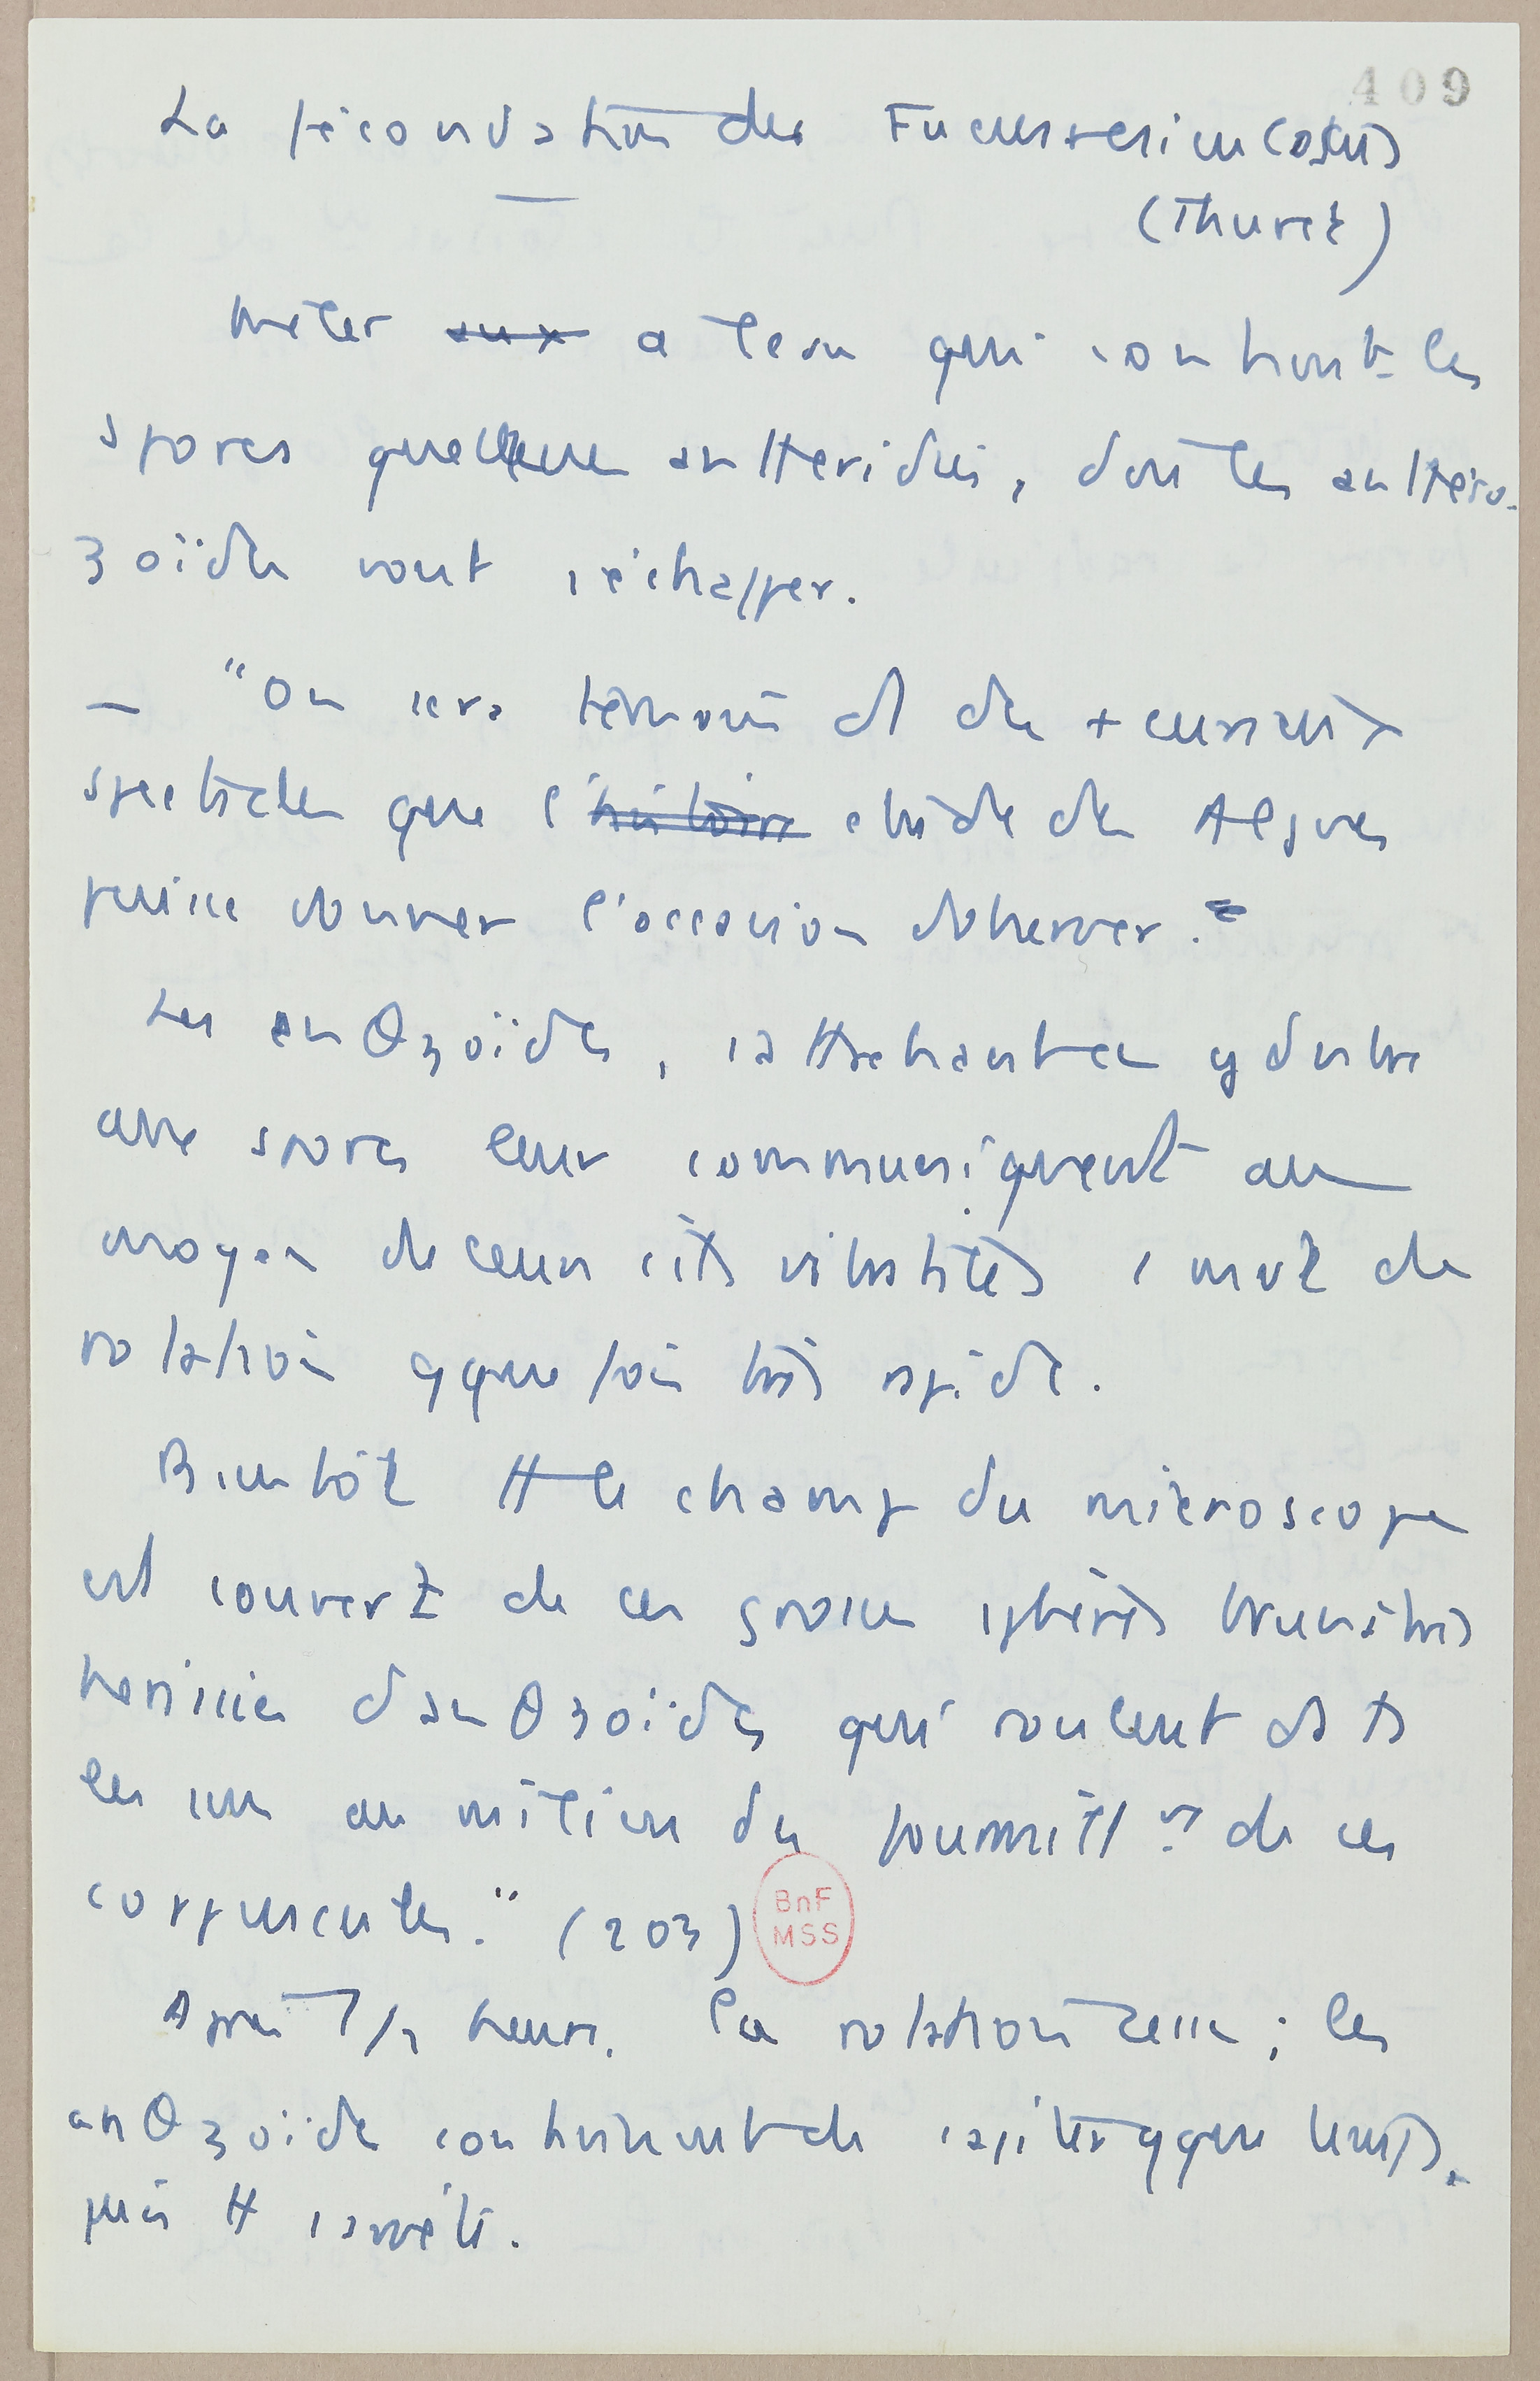 409
La fécondation des Fucus vesiculosus
(Thuret)
mêler aux a l'eau qui contient les
spores quelques anthéridies, dont les anthéro-
zoïdes vont s'échapper.
— "On sera témoin d'1 des + curieux
spectacles que l'histoire étude des Algues
puisse donner l'occasion d'observer.
Les anθzoïdes, s'attachant en
aux spores leur communiquent au
moyen de leurs cils vibratiles 1 mvt de
rotation qquefois très rapide.
Bientôt tt le champ du microscope
est couvert de ces grosses sphères brunâtres
hérissées d'anθzoïdes qui roulent ds ts
les sens au milieu du fourmillnt de ces
corpuscules." (203)
BnF
MSS
Après 1/2 heure. la rotation cesse ; les
anθzoïdes continuent de s'agiter qque temps.
puis tt s'arrête.